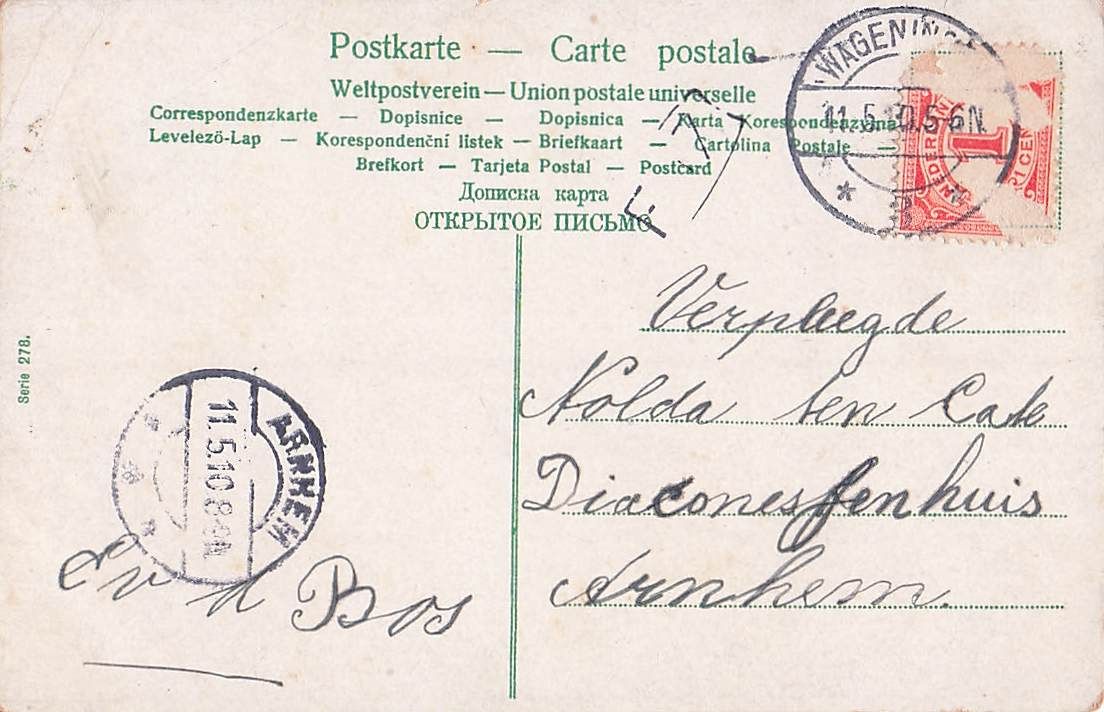 Postkarte — Carte postale
Weltpostverein — Union postale universelle
Correspondenzkarte — Dopisnice — Dopisnica — Karta Korespondenzyjna
Levelező-Lap — Korespondenční listek — Briefkaart — Cartolina Postale —
Brefkort — Tarjeta Postal — Postcard
Дописна карта
ОТКРЫТОЕ ПИСЬМО
WAGENING
11.5.10.5-6N
NEDERLAND
1
1 CEN
Verpleegde
Nolda ten Cate
Diaconessenhuis
Arnhem.
Serie 278.
ARNHEM
11.5.10.8-9N
Ev d Bos